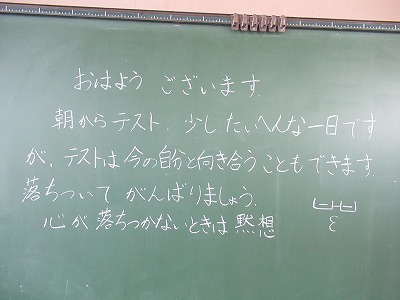 おはよう ございます.
朝からテスト. 少したいへんな一日です
が, テストは今の自分と向き合うこともできます.
落ちついて がんばりましょう.
心が 落ちつかないときは 黙想